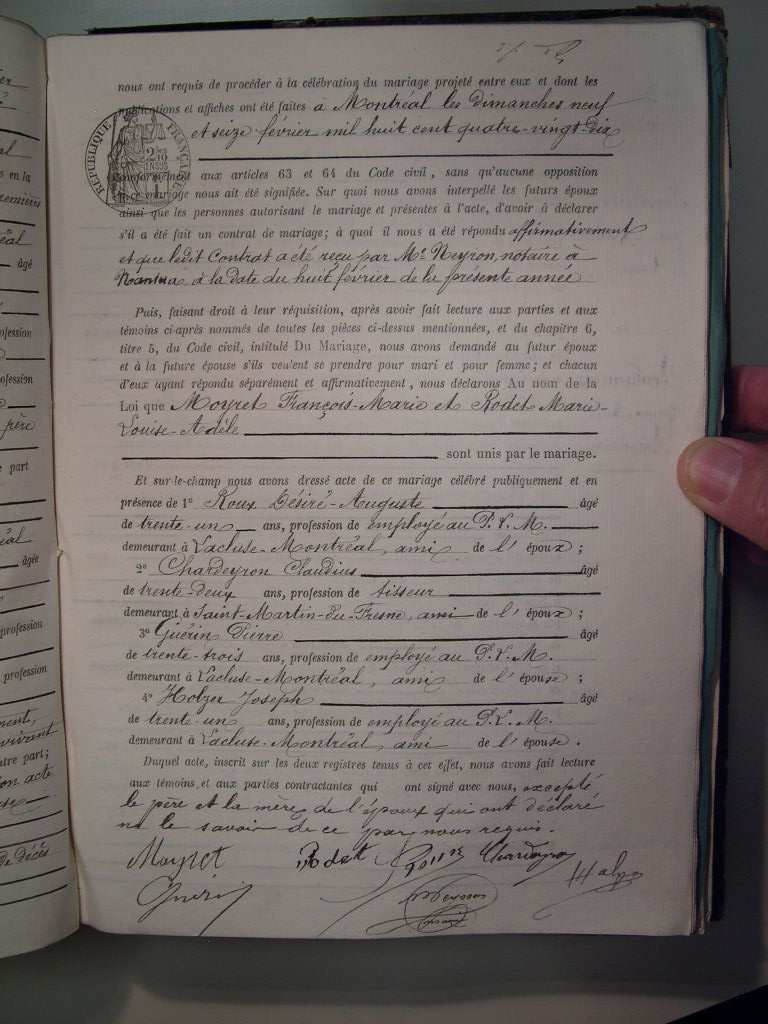 nous ont requis de procéder à la célébration du mariage projeté entre eux et dont les
publications et affiches ont été faites à Montréal les dimanches neuf
et seize février mil huit cent quatre-vingt-dix
RÉPUBLIQUE FRANÇAISE
Conformément aux articles 63 et 64 du Code civil, sans qu'aucune opposition
à ce mariage nous ait été signifiée. Sur quoi nous avons interpellé les futurs époux
ainsi que les personnes autorisant le mariage et présentes à l'acte, d'avoir à déclarer
s'il a été fait un contrat de mariage; à quoi il nous a été répondu affirmativement
et que ledit Contrat a été reçu par Me Neyron, notaire à
Nantua à la date du huit février de la présente année
Puis, faisant droit à leur réquisition, après avoir fait lecture aux parties et aux
témoins ci-après nommés de toutes les pièces ci-dessus mentionnées, et du chapitre 6,
titre 5, du Code civil, intitulé Du Mariage, nous avons demandé au futur époux
et à la future épouse s'ils veulent se prendre pour mari et pour femme; et chacun
d'eux ayant répondu séparément et affirmativement, nous déclarons Au nom de la
Loi que Moyret François-Marie et Rodet Marie-
Louise-Adèle
sont unis par le mariage.
Et sur-le-champ nous avons dressé acte de ce mariage célébré publiquement et en
présence de 1° Roux Désiré-Auguste âgé
de trente-un ans, profession de employé au P.L.M.
demeurant à Lacluse-Montréal, ami de l'époux;
2° Chardeyron Claudius âgé
de trente-deux ans, profession de tisseur
demeurant à Saint-Martin-du-Fresne, ami de l'époux;
3° Guérin Pierre âgé
de trente-trois ans, profession de employé au P.L.M.
demeurant à Lacluse-Montréal, ami de l'épouse;
4° Holzer Joseph âgé
de trente-un ans, profession de employé au P.L.M.
demeurant à Lacluse-Montréal, ami de l'épouse.
Duquel acte, inscrit sur les deux registres tenus à cet effet, nous avons fait lecture
aux témoins et aux parties contractantes qui ont signé avec nous, excepté
le père et la mère de l'époux qui ont déclaré
ne le savoir de ce par nous requis.
Moyret Rodet
Guérin